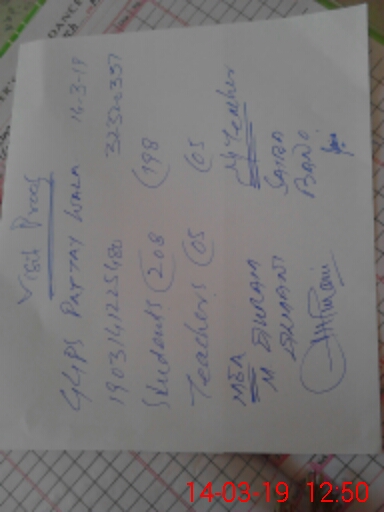 Visit Proof
GGPS PATTAY WALA 14-3-19
1903141225480 32320337
Students (208 (198
Teachers (05 (05
MEA Hg Teacher
M IKRAM SAIRA
BANO
14-03-19 12:50